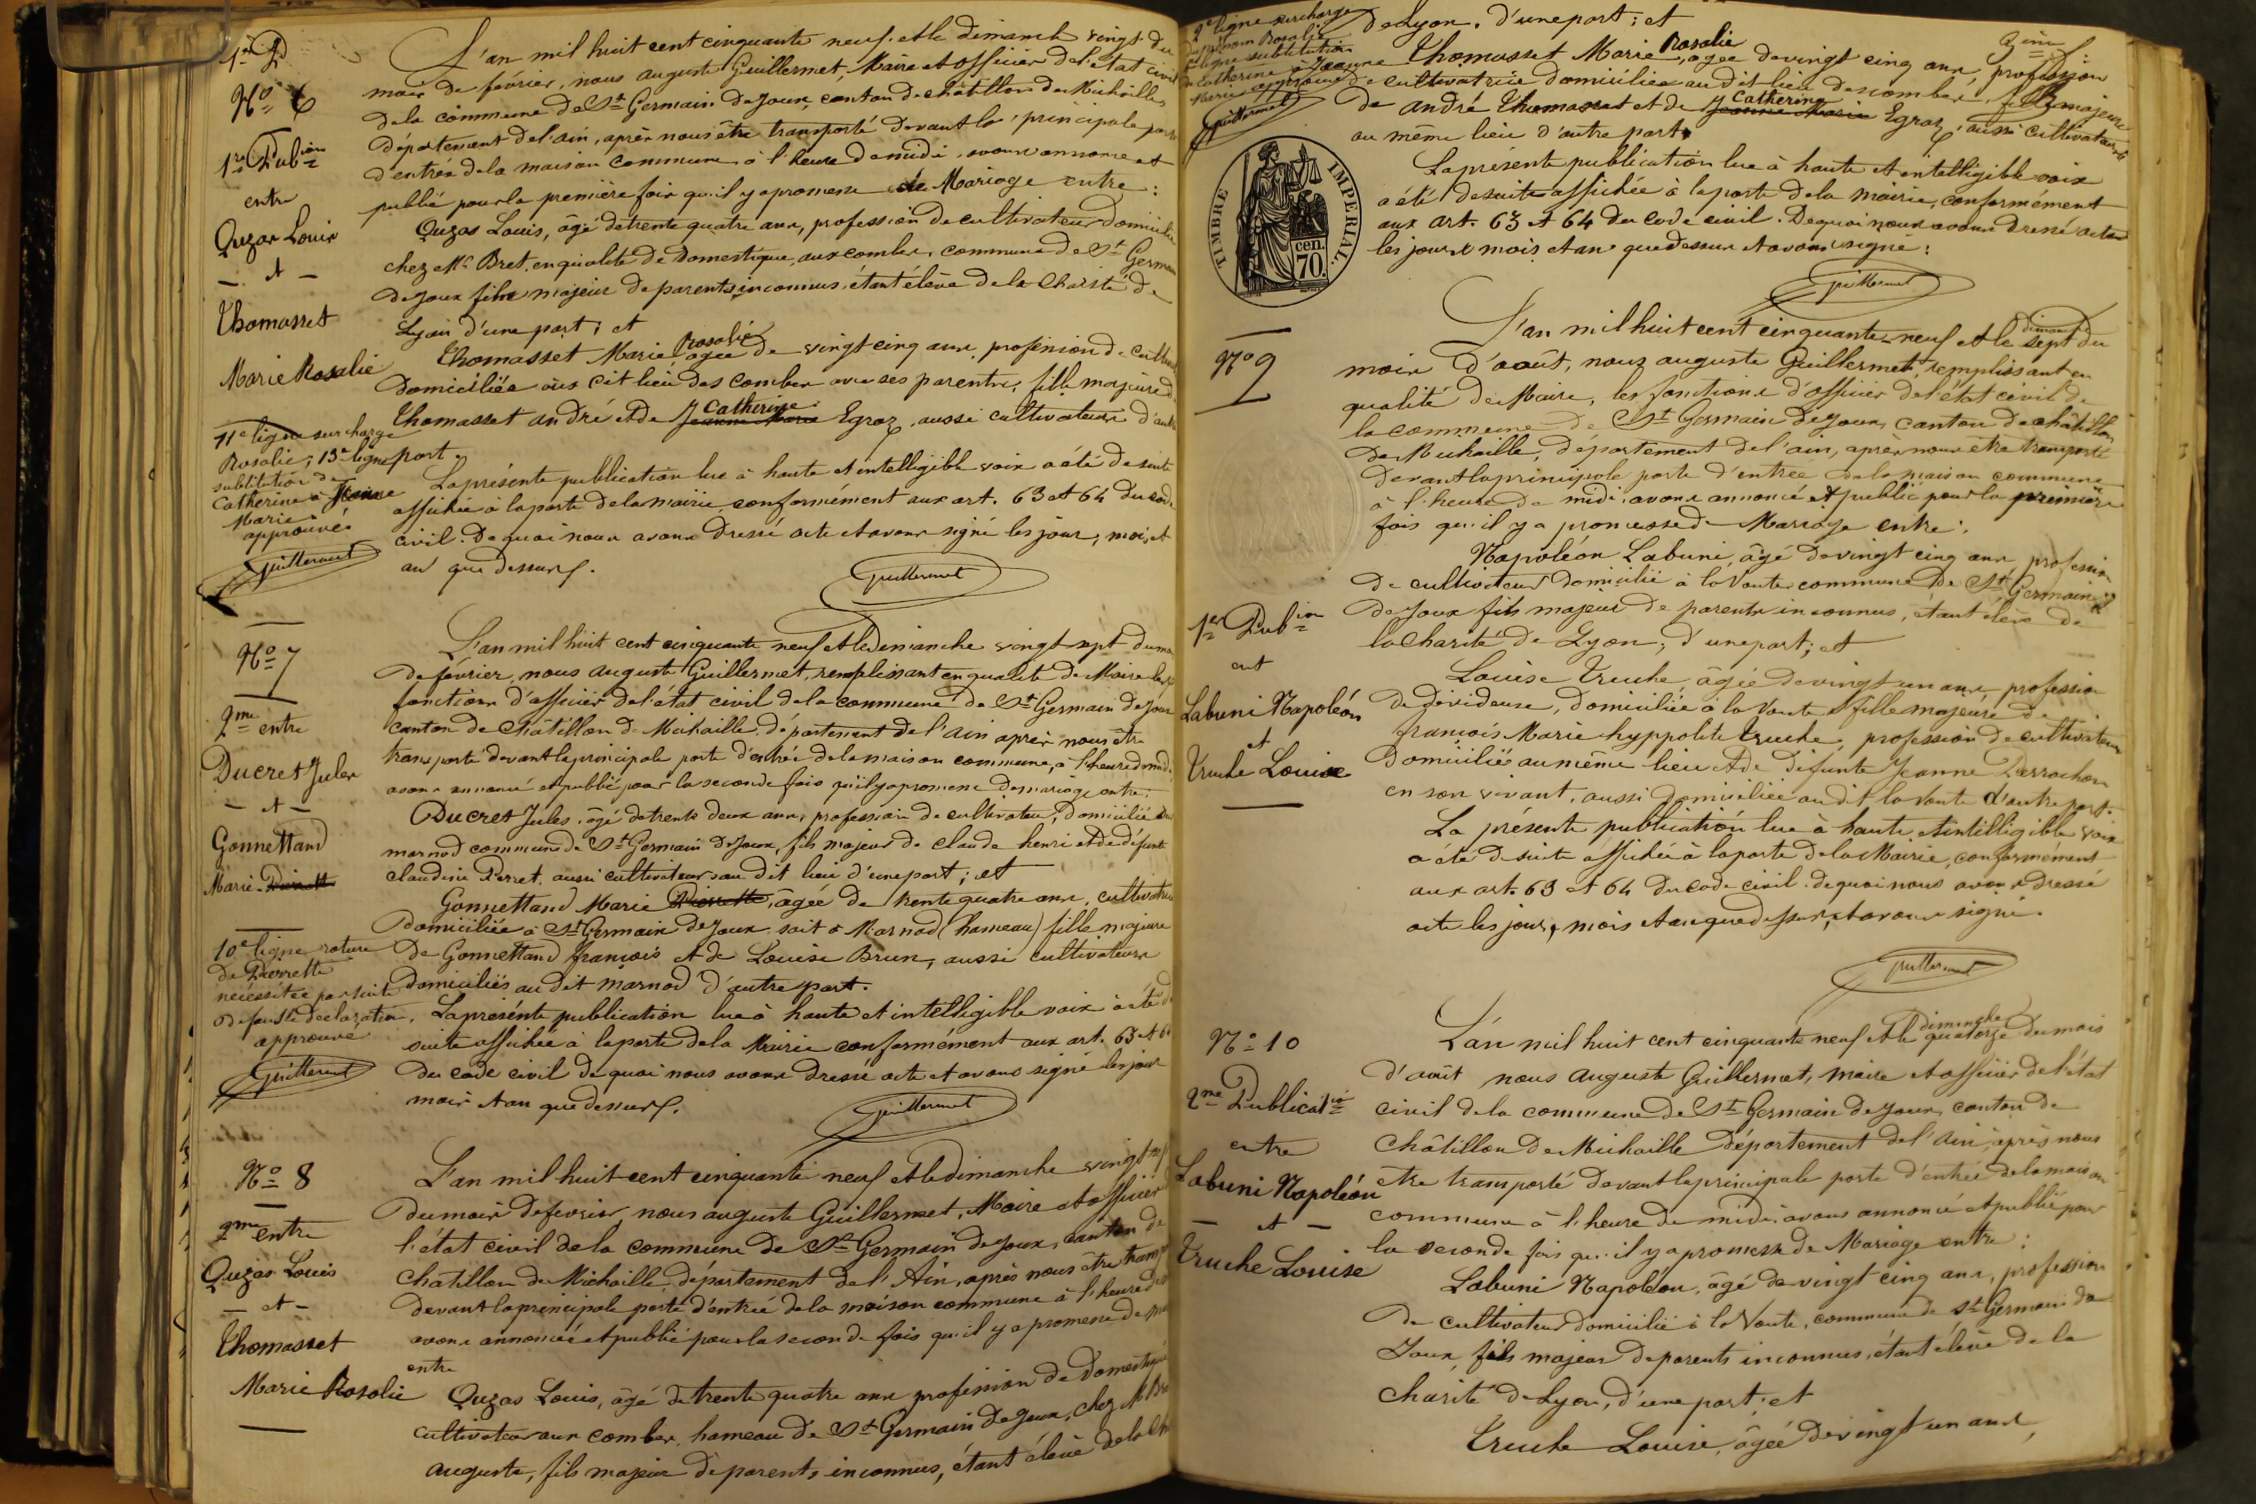 1re P
No 6
1re Pubion
entre
Quzas Louis
- et -
Thomasset
Marie Rosalie
11e ligne surcharge
Rosalie; 13e ligne
substitution de
Catherine à Jeanne
Marie
approuvé
Guillermet
L'an mil huit cent cinquante neuf et le dimanche vingt du
mois de février, nous auguste Guillermet, Maire et officier de l'état civil
de la commune de St Germain de Joux, canton de châtillon de Michaille,
département de l'ain, après nous être transporté devant la principale porte
d'entrée de la maison commune à l'heure de midi, avons annoncé et
publié pour la première fois qu'il y a promesse de Mariage entre :
Quzas Louis, âgé de trente quatre ans, profession de cultivateur domicilié
chez Mr Bret, en qualité de domestique, aux combes, commune de St Germain
de Joux fils majeur de parents inconnus, étant élève de la Charité de
Lyon d'une part; et
Thomasset Marie Rosalie âgée de vingt cinq ans, profession de
domiciliée au dit lieu des combes avec ses parents, fille majeure de
Thomasset andré et de Jeanne Marie Catherine Egraz, aussi cultivateurs d'autre
part.
La présente publication lue à haute et intelligible voix a été de suite
affichée à la porte de la mairie, conformément aux art. 63 et 64 du code
civil. De quoi nous avons dressé acte et avons signé les jour, mois, et
an que dessus.
Guillermet
No 7
2me entre
Ducret Jules
- et -
Gonnettand
Marie Pierrette
10e ligne rature
de Pierrette
nécessitée par suite
de fausse déclaration,
approuvé
Guillermet
L'an mil huit cent cinquante neuf et le dimanche vingt sept du mois
de février, nous auguste Guillermet, remplissant en qualité de Maire les
fonctions d'officier de l'état civil de la commune de St Germain de Joux
canton de Châtillon de Michaille, département de l'ain après nous être
transporté devant la principale porte d'entrée de la maison commune, à l'heure de midi
avons annoncé et publié pour la seconde fois qu'il y a promesse de mariage entre :
Ducret Jules, âgé de trente deux ans, profession de cultivateur, domicilié au
marnod commune de St Germain de Joux, fils majeur de claude henri et de défunte
claudine Perret, aussi cultivateurs au dit lieu d'une part; et
Gonnettand Marie Pierrette, âgée de trente quatre ans, cultivatrice
domiciliée à St Germain de Joux soit à Marnod (hameau) fille majeure
de Gonnettand françois et de Louise Brun, aussi cultivateurs
domiciliés au dit marnod d'autre part.
La présente publication lue à haute et intelligible voix a été de
suite affichée à la porte de la Mairie conformément aux art. 63 et 64
du code civil de quoi nous avons dressé acte et avons signé les jour
mois et an que dessus.
Guillermet
No 8
2me entre
Quzas Louis
- et -
Thomasset
Marie Rosalie
L'an mil huit cent cinquante neuf et le dimanche vingt sept
du mois de fevrier, nous auguste Guillermet, Maire et officier de
l'état civil de la commune de St Germain de Joux, canton de
Châtillon de Michaille, département de l'Ain, après nous être transporté
devant la principale porte d'entrée de la maison commune à l'heure de
avons annoncé et publié pour la seconde fois qu'il y a promesse de
entre
Quzas Louis, âgé de trente quatre ans profession de domestique
cultivateur aux combes, hameau de St Germain de Joux, chez Mr Bret
auguste, fils majeur de parents inconnus, étant élève de la
2e ligne surcharge
du prénom Rosalie
substitution
de Catherine à Jeanne
Marie approuvé
Guillermet
3ème
de Lyon, d'une part; et
Thomasset Marie Rosalie, âgée de vingt cinq ans, profession
de cultivatrice domiciliée au dit lieu des combes, fille majeure
de andré Thomasset et de Jeanne Marie Catherine Egraz, aussi cultivateurs
au même lieu d'autre part.
La présente publication lue à haute et intelligible voix
a été de suite affichée à la porte de la Mairie, conformément
aux art. 63 et 64 du code civil. De quoi nous avons dressé acte
les jour mois et an que dessus et avons signé :
Guillermet
TIMBRE IMPERIAL.
cen.
70.
No 9
1er Pubion
ent
Labuni Napoléon
et
Truche Louise
L'an mil huit cent cinquante neuf et le dimanche sept du
mois d'août, nous auguste Guillermet, remplissant en
qualité de Maire, les fonctions d'officier de l'état civil de
la commune de St Germain de Joux, canton de châtillon
de Michaille, département de l'ain, après nous être transporté
devant la principale porte d'entrée de la maison commune
à l'heure de midi avons annoncé et publié pour la première
fois qu'il y a promesse de Mariage entre :
Napoléon Labuni, âgé de vingt cinq ans, profession
de cultivateur domicilié à la Voute commune de St Germain
de Joux fils majeur de parents inconnus, étant élève de
la Charité de Lyon, d'une part; et
Louise Truche, âgée de vingt un ans, profession
de dévideuse, domiciliée à la Voute, fille majeure de
françois Marie hyppolite Truche, profession de cultivateur
domicilié au même lieu et de défunte Jeanne Perrachon
en son vivant, aussi domiciliée au dit la Voute d'autre part.
La présente publication lue à haute et intelligible voix
a été de suite affichée à la porte de la Mairie, conformément
aux art. 63 et 64 du code civil. de quoi nous avons dressé
acte les jour, mois et an que dessus, et avons signé.
Guillermet
No 10
2me Publication
entre
Labuni Napoléon
- et -
Truche Louise
L'an mil huit cent cinquante neuf et le dimanche quatorze du mois
d'août nous auguste Guillermet, maire et officier de l'état
civil de la commune de St Germain de Joux, canton de
Châtillon de Michaille département de l'Ain, après nous
être transporté devant la principale porte d'entrée de la maison
commune à l'heure de midi, avons annoncé et publié pour
la seconde fois qu'il y a promesse de Mariage entre :
Labuni Napoléon, âgé de vingt cinq ans, profession
de cultivateur domicilié à la Voute, commune de St Germain de
Joux, fils majeur de parents inconnus, étant élève de la
Charité de Lyon, d'une part; et
Truche Louise, âgée de vingt un ans,